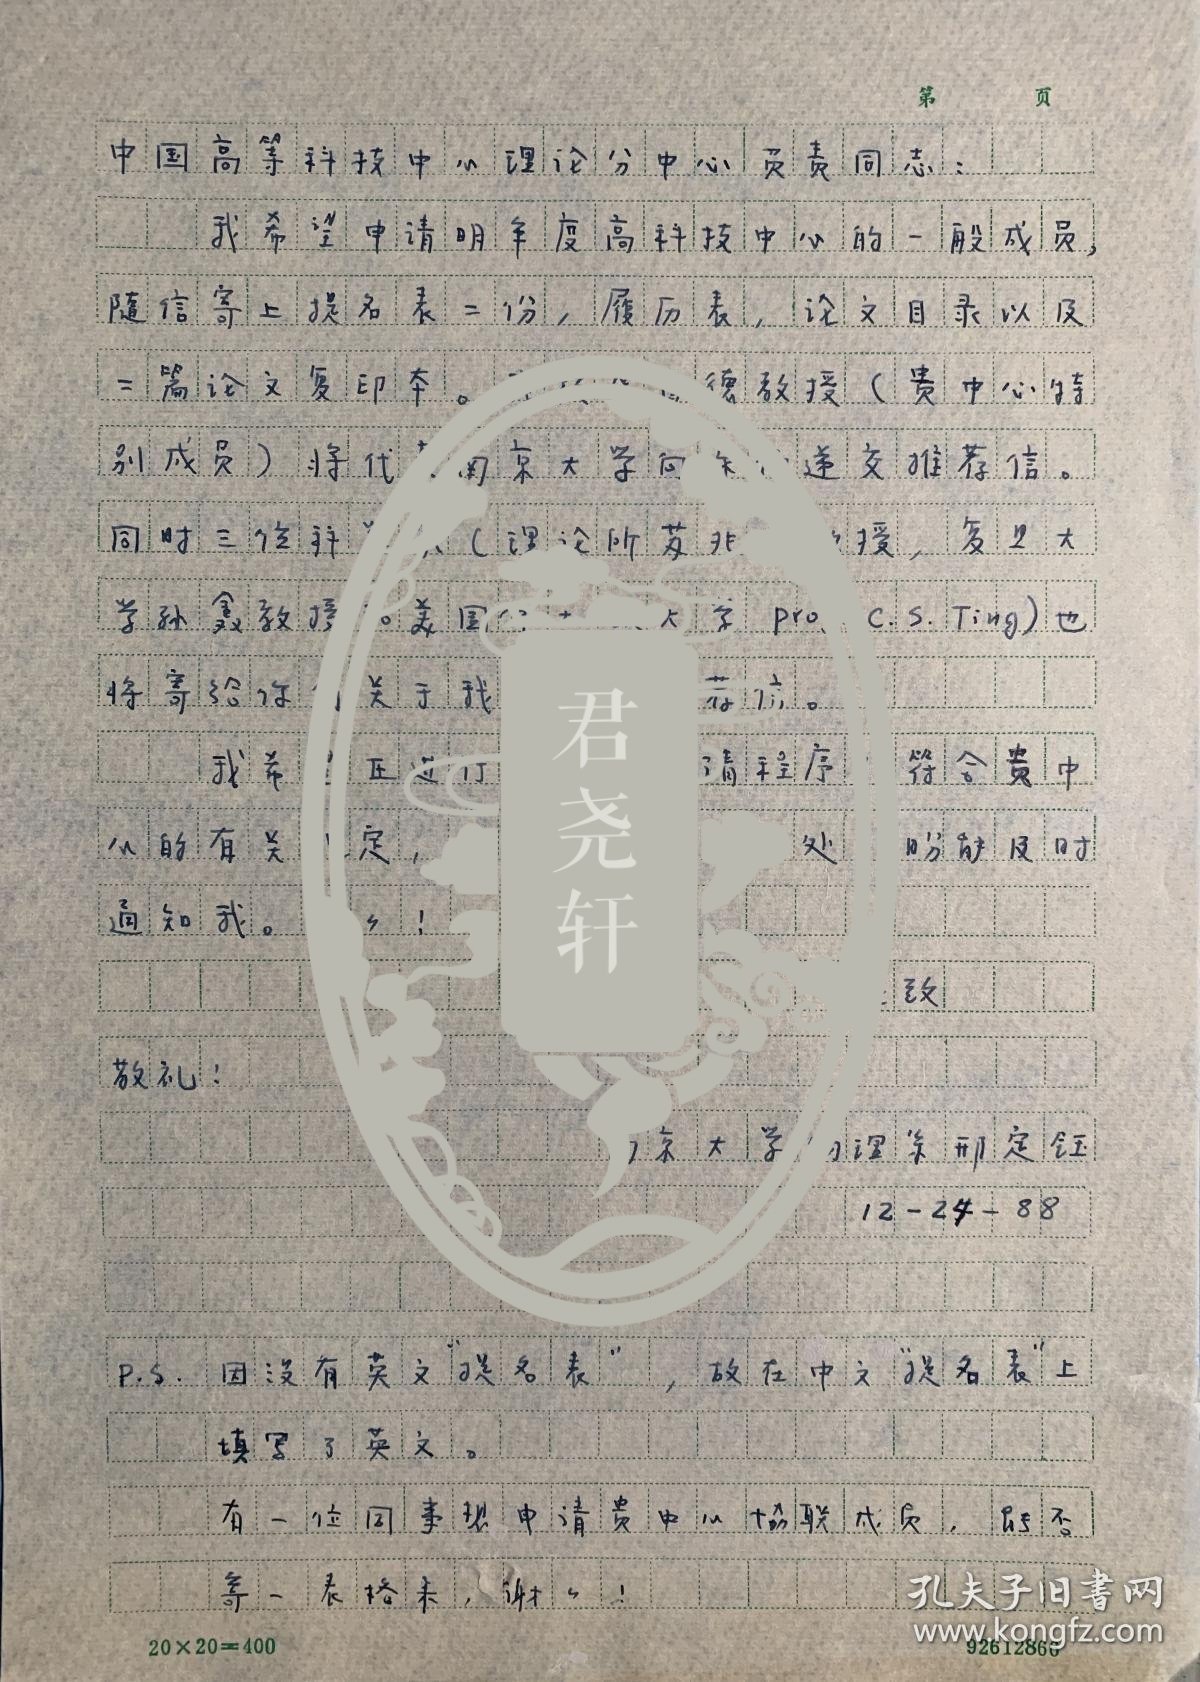 第 页
中国高等科技中心理论分中心负责同志：
我希望申请明年度高科技中心的一般成员，
随信寄上提名表二份，履历表，论文目录以及
二篇论文复印本。德教授（贵中心特
别成员）将代南京大学向递交推荐信。
同时三位科（理论所苏教授，复旦大
学孙鑫教授 美国大学 pro C.S.Ting）也
将寄给你 关于我 荐信。
我希 正进行 请程序 符合贵中
心的有关 定， 处 盼能及时
通知我。 ！
致
敬礼！
京大学 理系邢定钰
12-24-88
P.S. 因没有英文“提名表”，故在中文“提名表”上
填写了英文。
有一位同事想申请贵中心协联成员，能否
寄一表格来，谢〃！
20×20=400
92612866
君尧轩
孔夫子旧书网
www.kongfz.com